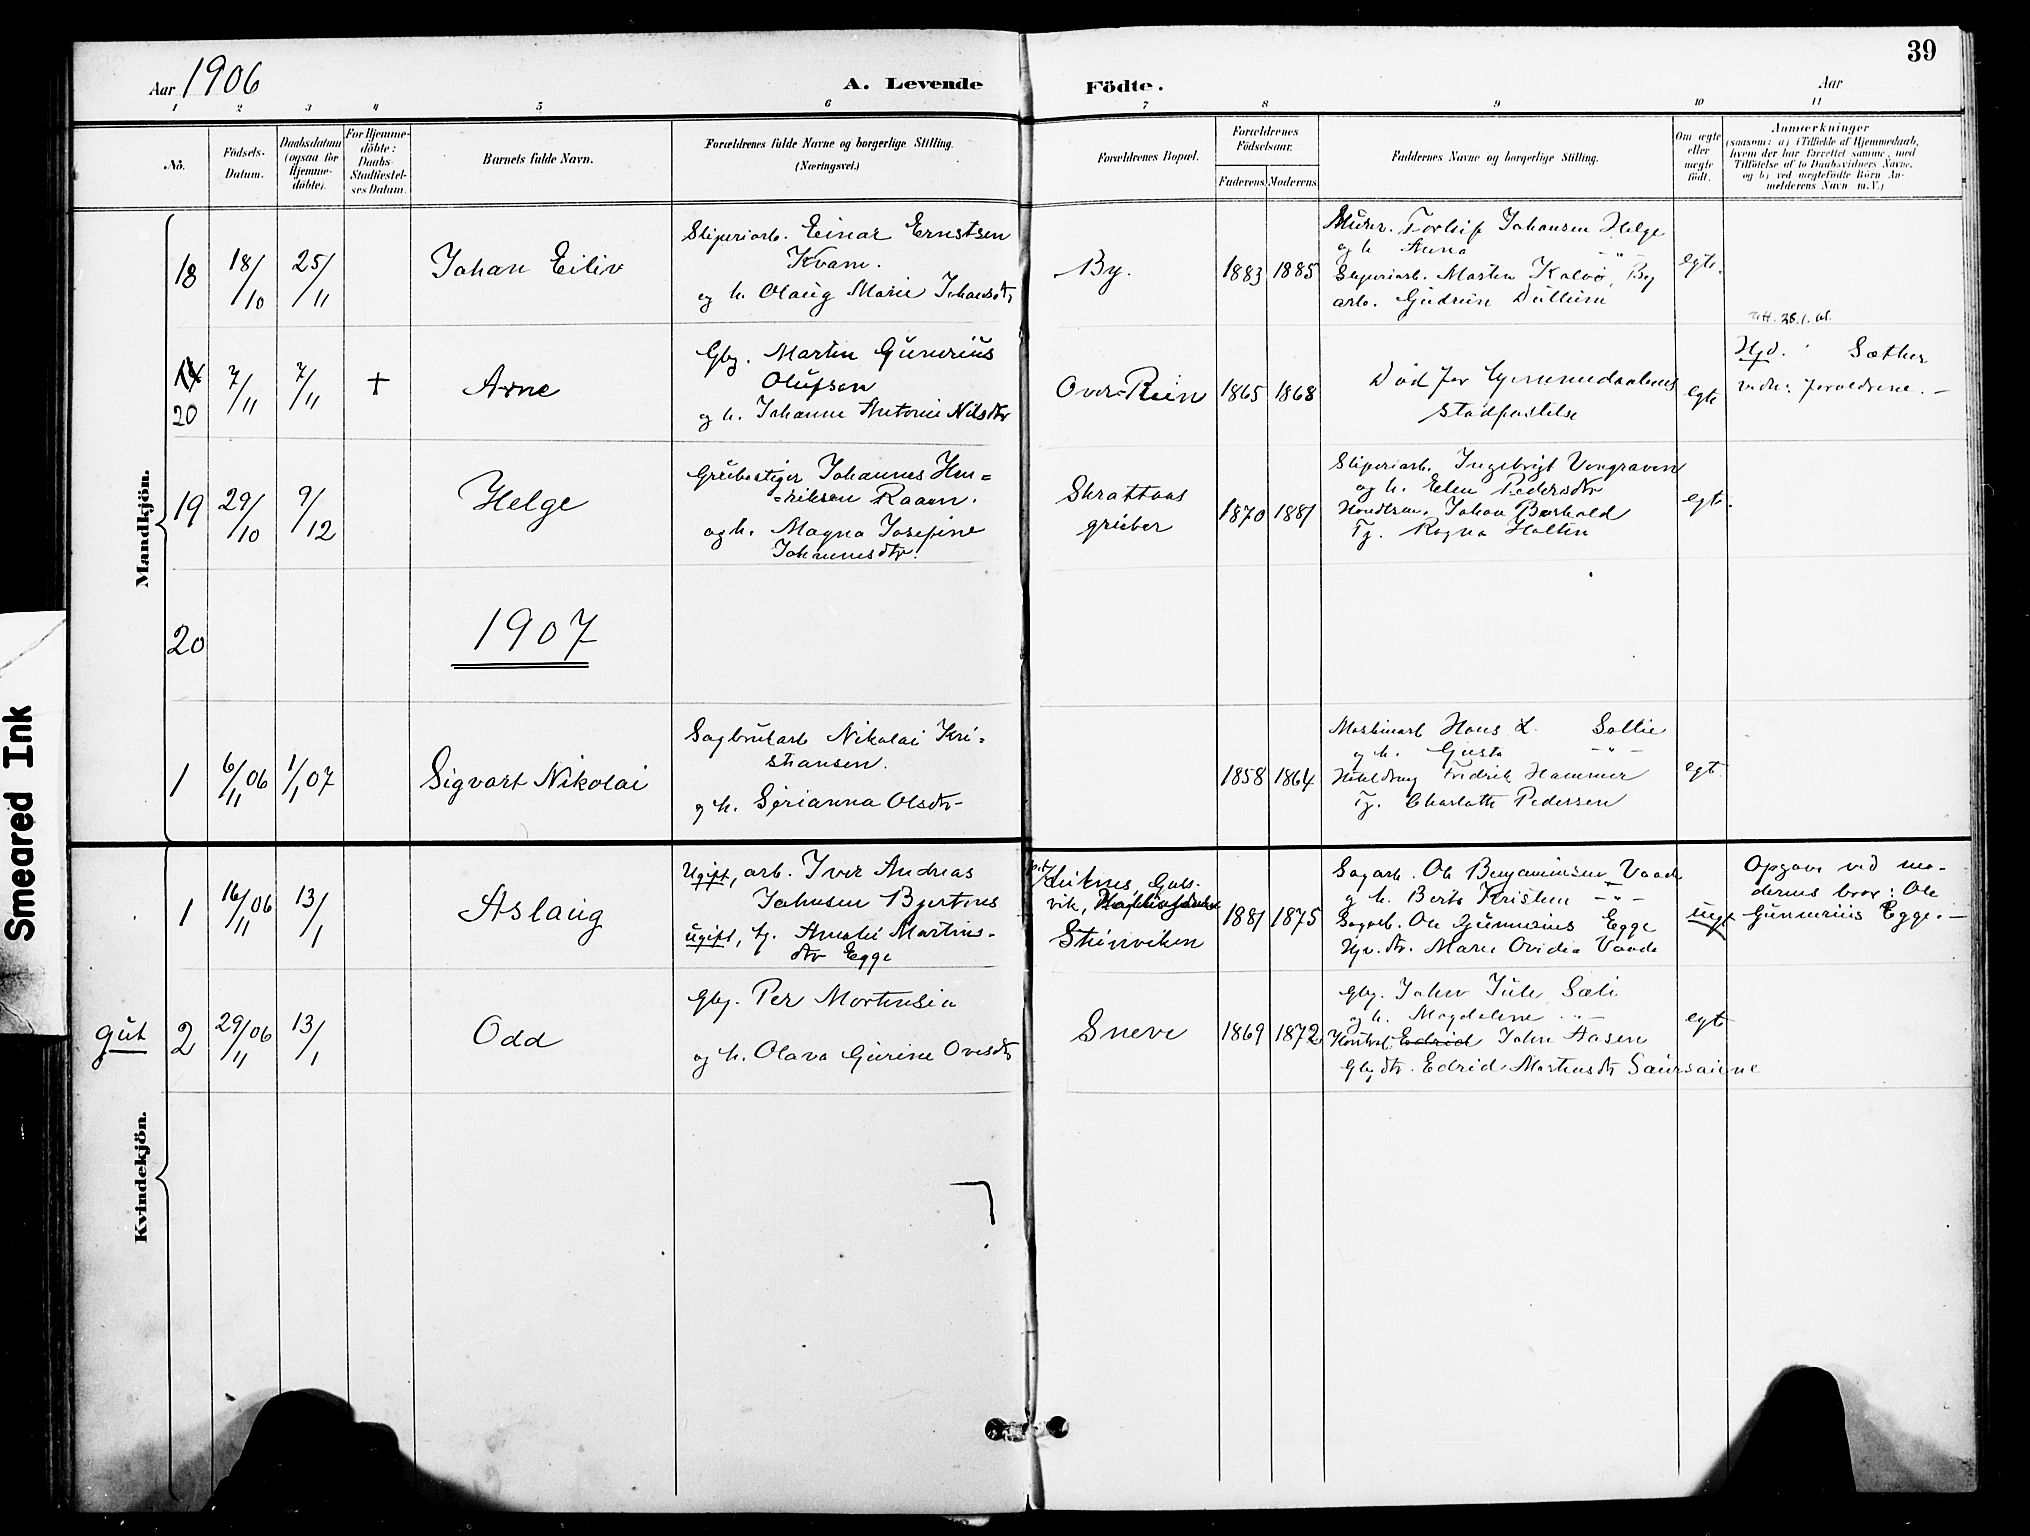 39
Aar 1906
A. Levende Födte.
Aar
1 2 3 4 5 6 7 8 9 10 11
Nö.
Födsels-
Datum.
Daabsdatum
(ogsaa for
Hjemme-
döbte).
For Hjemme-
döbte:
Daabs-
Stadfæstel-
ses Datum.
Barnets fulde Navn.
Forældrenes fulde Navne og borgerlige Stilling.
(Næringsvei.)
Forældrenes Bopæl.
Forældrenes
Födselsaar.
Faderens. Moderens.
Faddernes Navne og borgerlige Stilling.
Om ægte
eller
uægte
födt.
Anmærkninger
(saasom: a) i Tilfælde af Hjemmedaab,
hvem der har forrettet samme, med
Tilföielse af to Daabsvidners Navne.
og b) ved uægtefödte Börn An-
melderens Navn m. V.)
Mandkjön.
18
18/10
25/11
Johan Eiliv
Sliperiarb. Einar Ernstsen
Kvam.
og h. Olaug Marie Johansdtr
By.
1883 1885
Murer. Torleif Johansen Helge
og h. Anna
Sliperiarb. Martin Kalvö, By
arb. Gudrun Dullum
egte.
20
7/11
7/11
+
Arne
Gbg. Martin Gunerius
Olufsen
og h. Johanne Antonie Nilsdtr
Over-Rein
1865 1868
Död før Hjemmedaabens
stadfæstelse
egte
Hjd. Sæther
vidn: forældrene. –
19
29/10
9/12
Helge
Grubestiger Johannes Hen=
=riksen Raaen.
og h. Magna Josefine
Johannesdtr.
Skrattaas
gruber
1870 1881
Sliperiarb. Ingebrigt Vongraven
og h. Elen Pedersdtr
Handlsm. Johan Barhald
Tj. Ragna Holten
egt.
20
1907
1
6/11 06
1/1 07
Sigvart Nikolai
Sagbrukarb Nikolai Kri=
stiansen.
og h. Serianna Olsdtr-
1858 1864
Maskinarb Hans L. Sollie
og h. Gusta -"-
Fredrik Hammer
Tj. Charlotte Pedersen
egt.
Kvindekjön.
1
16/11 06
13/1
Aslaug
Ugift, arb. Iver Andreas
Johnsen Bjertnes
ugift, tj. Amalie Martins-
dtr Egge
Steinviken
1881 1875
Sagarb. Ole Benjaminsen Vaade
og h. Berta Kristine -"-
Sagarb. Ole Gunnerius Egge
Gbr. dtr. Marie Ovidia Vaade
uegt
Opgave ved mo-
derens bror: Ole
Gunnerius Egge. –
gut
2
29/11 06
13/1
Odd
Gbg. Per Mortensen
og h. Olava Gurine Ovesdtr
Sneve
1869 1872
Gbg. Johan Juli Sæli
og h. Magdalene -"-
Edrid John Aasen
Gbgdtr. Edrid Mortensdtr
egt
Smeared Ink